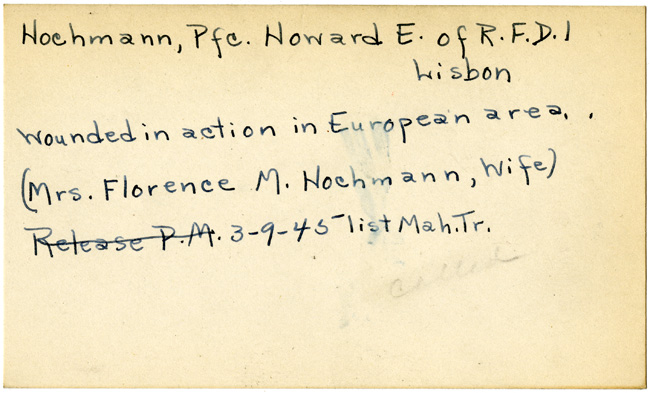 Hochmann, Pfc. Howard E. of R.F.D. 1
Lisbon
Wounded in action in European area.
(Mrs. Florence M. Hochmann, Wife)
Release P.M. 3-9-45 list Mah. Tr.
called